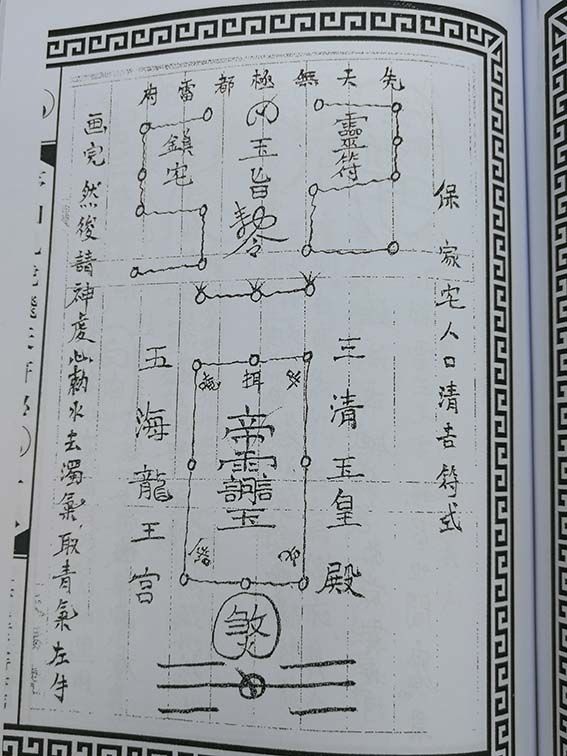 保家宅人口清吉符式
先天無極都雷府
靈符
玉旨
鎮宅
三清玉皇殿
帝
玉
煞
五海龍王宮
画完然後請神虔心勅水去濁氣取青氣左手